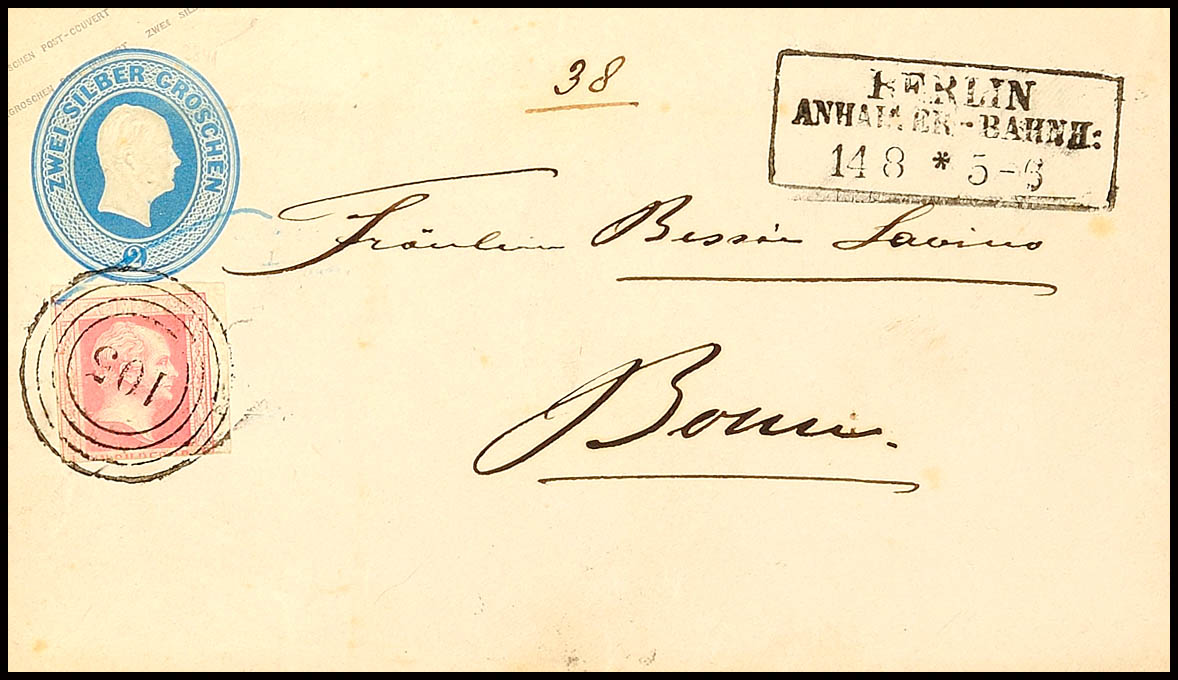 SCHEN POST-COUVERT ZWEI SILB
GROSCHEN POST-COUVERT
ZWEI SILBER GROSCHEN
2
38
BERLIN
ANHALTER-BAHNH:
14 8 * 5-6
Fräulein
Bonn.
103
SILBERGR